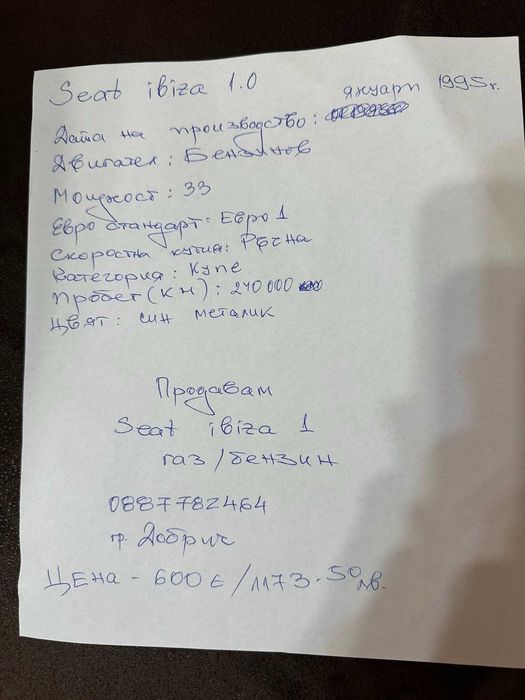 Seat ibiza 1.0
Дата на производство: януари 1995г.
Двигател: Бензинов
Мощност: 33
Евро стандарт: Евро 1
Скоростна кутия: Ръчна
Категория: Купе
Пробег (км): 240000
Цвят: син металик
Продавам
Seat ibiza 1
газ/бензин
0887782464
гр. Добрич
ЦЕНА - 600 € / 1173.50 лв.